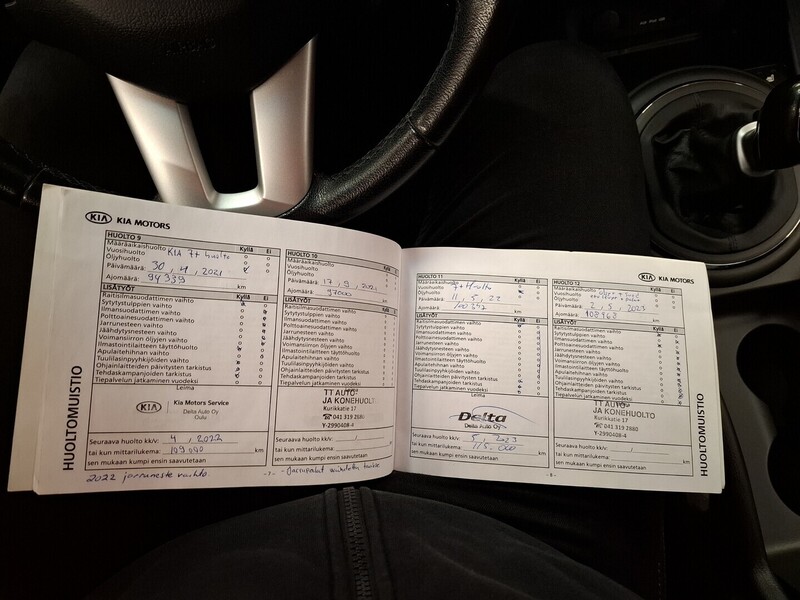 KIA KIA MOTORS
HUOLTO 9
Kyllä Ei
Määräaikaishuolto
Vuosihuolto KIA 7+ huolto
Öljyhuolto
Päivämäärä: 30, 4, 2021
Ajomäärä: 94339 km
LISÄTYÖT Kyllä Ei
Raitisilmasuodattimen vaihto
Sytytystulppien vaihto
Ilmansuodattimen vaihto
Polttoainesuodattimen vaihto
Jarrunesteen vaihto
Jäähdytysnesteen vaihto
Voimansiirron öljyjen vaihto
Ilmastointilaitteen täyttöhuolto
Apulaitehihnan vaihto
Tuulilasinpyyhkijöiden vaihto
Ohjainlaitteiden päivitysten tarkistus
Tehdaskampanjoiden tarkistus
Tiepalvelun jatkaminen vuodeksi
Leima
KIA Kia Motors Service
Delta Auto Oy
Oulu
Seuraava huolto kk/v: 4, 2022
tai kun mittarilukema: km
sen mukaan kumpi ensin saavutetaan
2022 jarruneste vaihto.
HUOLTOMUISTIO
HUOLTO 10
Kyllä Ei
Määräaikaishuolto
Vuosihuolto
Öljyhuolto
Päivämäärä: 17, 9, 2021
Ajomäärä: 97000 km
LISÄTYÖT Kyllä Ei
Raitisilmasuodattimen vaihto
Sytytystulppien vaihto
Ilmansuodattimen vaihto
Polttoainesuodattimen vaihto
Jarrunesteen vaihto
Jäähdytysnesteen vaihto
Voimansiirron öljyjen vaihto
Ilmastointilaitteen täyttöhuolto
Apulaitehihnan vaihto
Tuulilasinpyyhkijöiden vaihto
Ohjainlaitteiden päivitysten tarkistus
Tehdaskampanjoiden tarkistus
Tiepalvelun jatkaminen vuodeksi
TT AUTO-
JA KONEHUOLTO
Kurikkatie 17
☎ 041 319 2880
Y-2990408-4
Seuraava huolto kk/v: ,
tai kun mittarilukema: km
sen mukaan kumpi ensin saavutetaan
- 7 -
KIA KIA MOTORS
HUOLTO 11
Kyllä Ei
Määräaikaishuolto
Vuosihuolto 7+ Huolto
Öljyhuolto
Päivämäärä: 11, 5, 22
Ajomäärä: km
LISÄTYÖT Kyllä Ei
Raitisilmasuodattimen vaihto
Sytytystulppien vaihto
Ilmansuodattimen vaihto
Polttoainesuodattimen vaihto
Jarrunesteen vaihto
Jäähdytysnesteen vaihto
Voimansiirron öljyjen vaihto
Ilmastointilaitteen täyttöhuolto
Apulaitehihnan vaihto
Tuulilasinpyyhkijöiden vaihto
Ohjainlaitteiden päivitysten tarkistus
Tehdaskampanjoiden tarkistus
Tiepalvelun jatkaminen vuodeksi
Leima
Delta
Delta Auto Oy
Seuraava huolto kk/v: 5, 2023
tai kun mittarilukema: 115 000 km
sen mukaan kumpi ensin saavutetaan
- 8 -
HUOLTO 12
Kyllä Ei
Määräaikaishuolto
Vuosihuolto
Öljyhuolto
Päivämäärä: 2, 5, 2023
Ajomäärä: km
LISÄTYÖT Kyllä Ei
Raitisilmasuodattimen vaihto
Sytytystulppien vaihto
Ilmansuodattimen vaihto
Polttoainesuodattimen vaihto
Jarrunesteen vaihto
Jäähdytysnesteen vaihto
Voimansiirron öljyjen vaihto
Ilmastointilaitteen täyttöhuolto
Apulaitehihnan vaihto
Tuulilasinpyyhkijöiden vaihto
Ohjainlaitteiden päivitysten tarkistus
Tehdaskampanjoiden tarkistus
Tiepalvelun jatkaminen vuodeksi
TT AUTO-
JA KONEHUOLTO
Kurikkatie 17
☎ 041 319 2880
Y-2990408-4
Seuraava huolto kk/v: ,
tai kun mittarilukema: km
sen mukaan kumpi ensin saavutetaan
HUOLTOMUISTIO